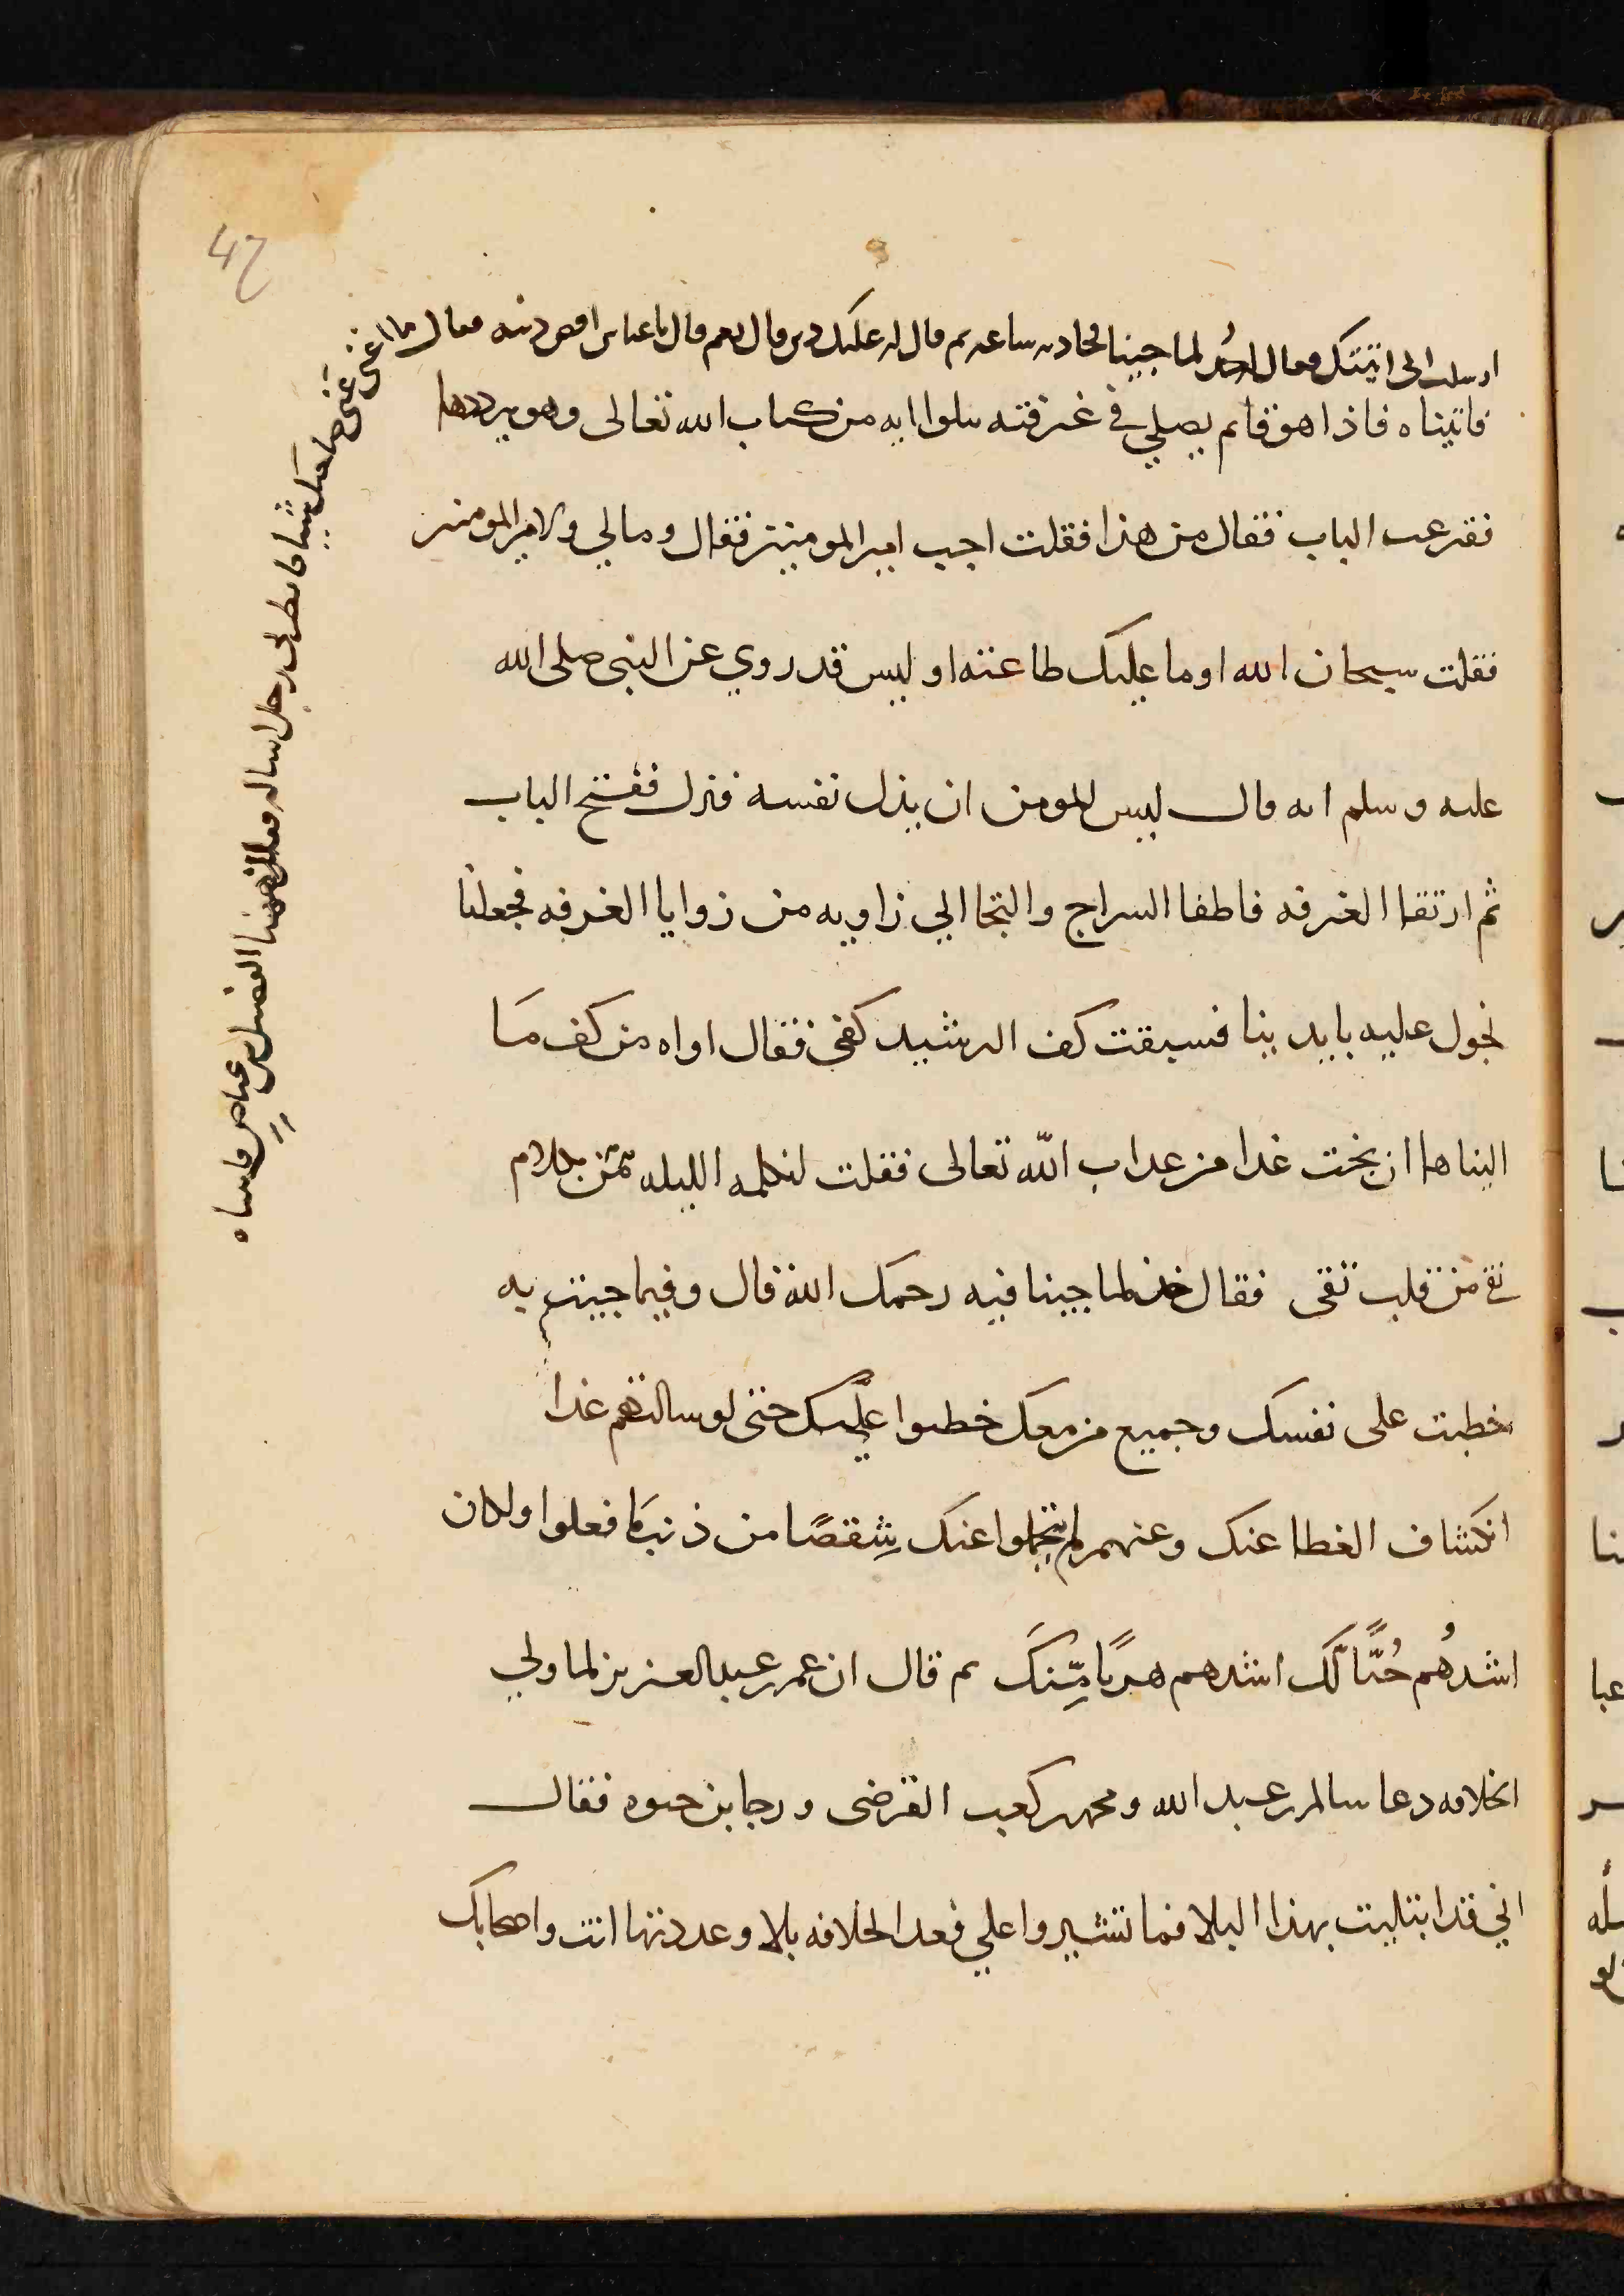 47
ارسلت الى اتيتك فقال لما جينا فحادثه ساعه ثم قال له عليك دين قال نعم قال يا عباس اقض دينه فقال ما اغنى
عنى صاحبك شيا فانظر لى رجل اساله فقلت ههنا الفضيل بن عياض فاتيناه
فاتيناه فاذا هو قايم يصلي في غرفته يتلوا ايه من كتاب الله تعالى وهو يرددها
فقرعت الباب فقال من هذا فقلت اجب امير المومنين فقال ومالي ولامير المومنين
فقلت سبحان الله اوما عليك طاعته او ليس قد روي عن النبى صلى الله
عليه وسلم انه قال ليس للمومن ان يذل نفسه فنزل ففتح الباب
ثم ارتقا الغرفه فاطفا السراج والتجا الي زاويه من زوايا الغرفه فجعلنا
نجول عليه بايدينا فسبقت كف الرشيد كفى فقال اواه من كف ما
الينها ان نجت غدا من عداب الله تعالى فقلت ليكلمه الليله بكلام
نقي من قلب تقى فقال خذ لما جينا فيه رحمك الله قال وفيما جيت به
خطيت على نفسك وجميع من معك خطيوا عليك حتى لو سالتهم غدا
انكشاف الغطا عنك وعنهم لم يتحملوا عنك شِقصًا من ذنب ما فعلوا ولكان
اشدُهُم حُبًّا لَّك اشدهم هربًا مِّنكَ ثم قال ان عمر بن عبد العزيز لما ولي
الخلافه دعا سالم بن عبد الله ومحمد بن كعب القرضى ورجا بن حيوه فقال
اني قد ابتليت بهذا البلا فما تشيروا علي فعد الخلافه بلا وعددتها انت واصحابك